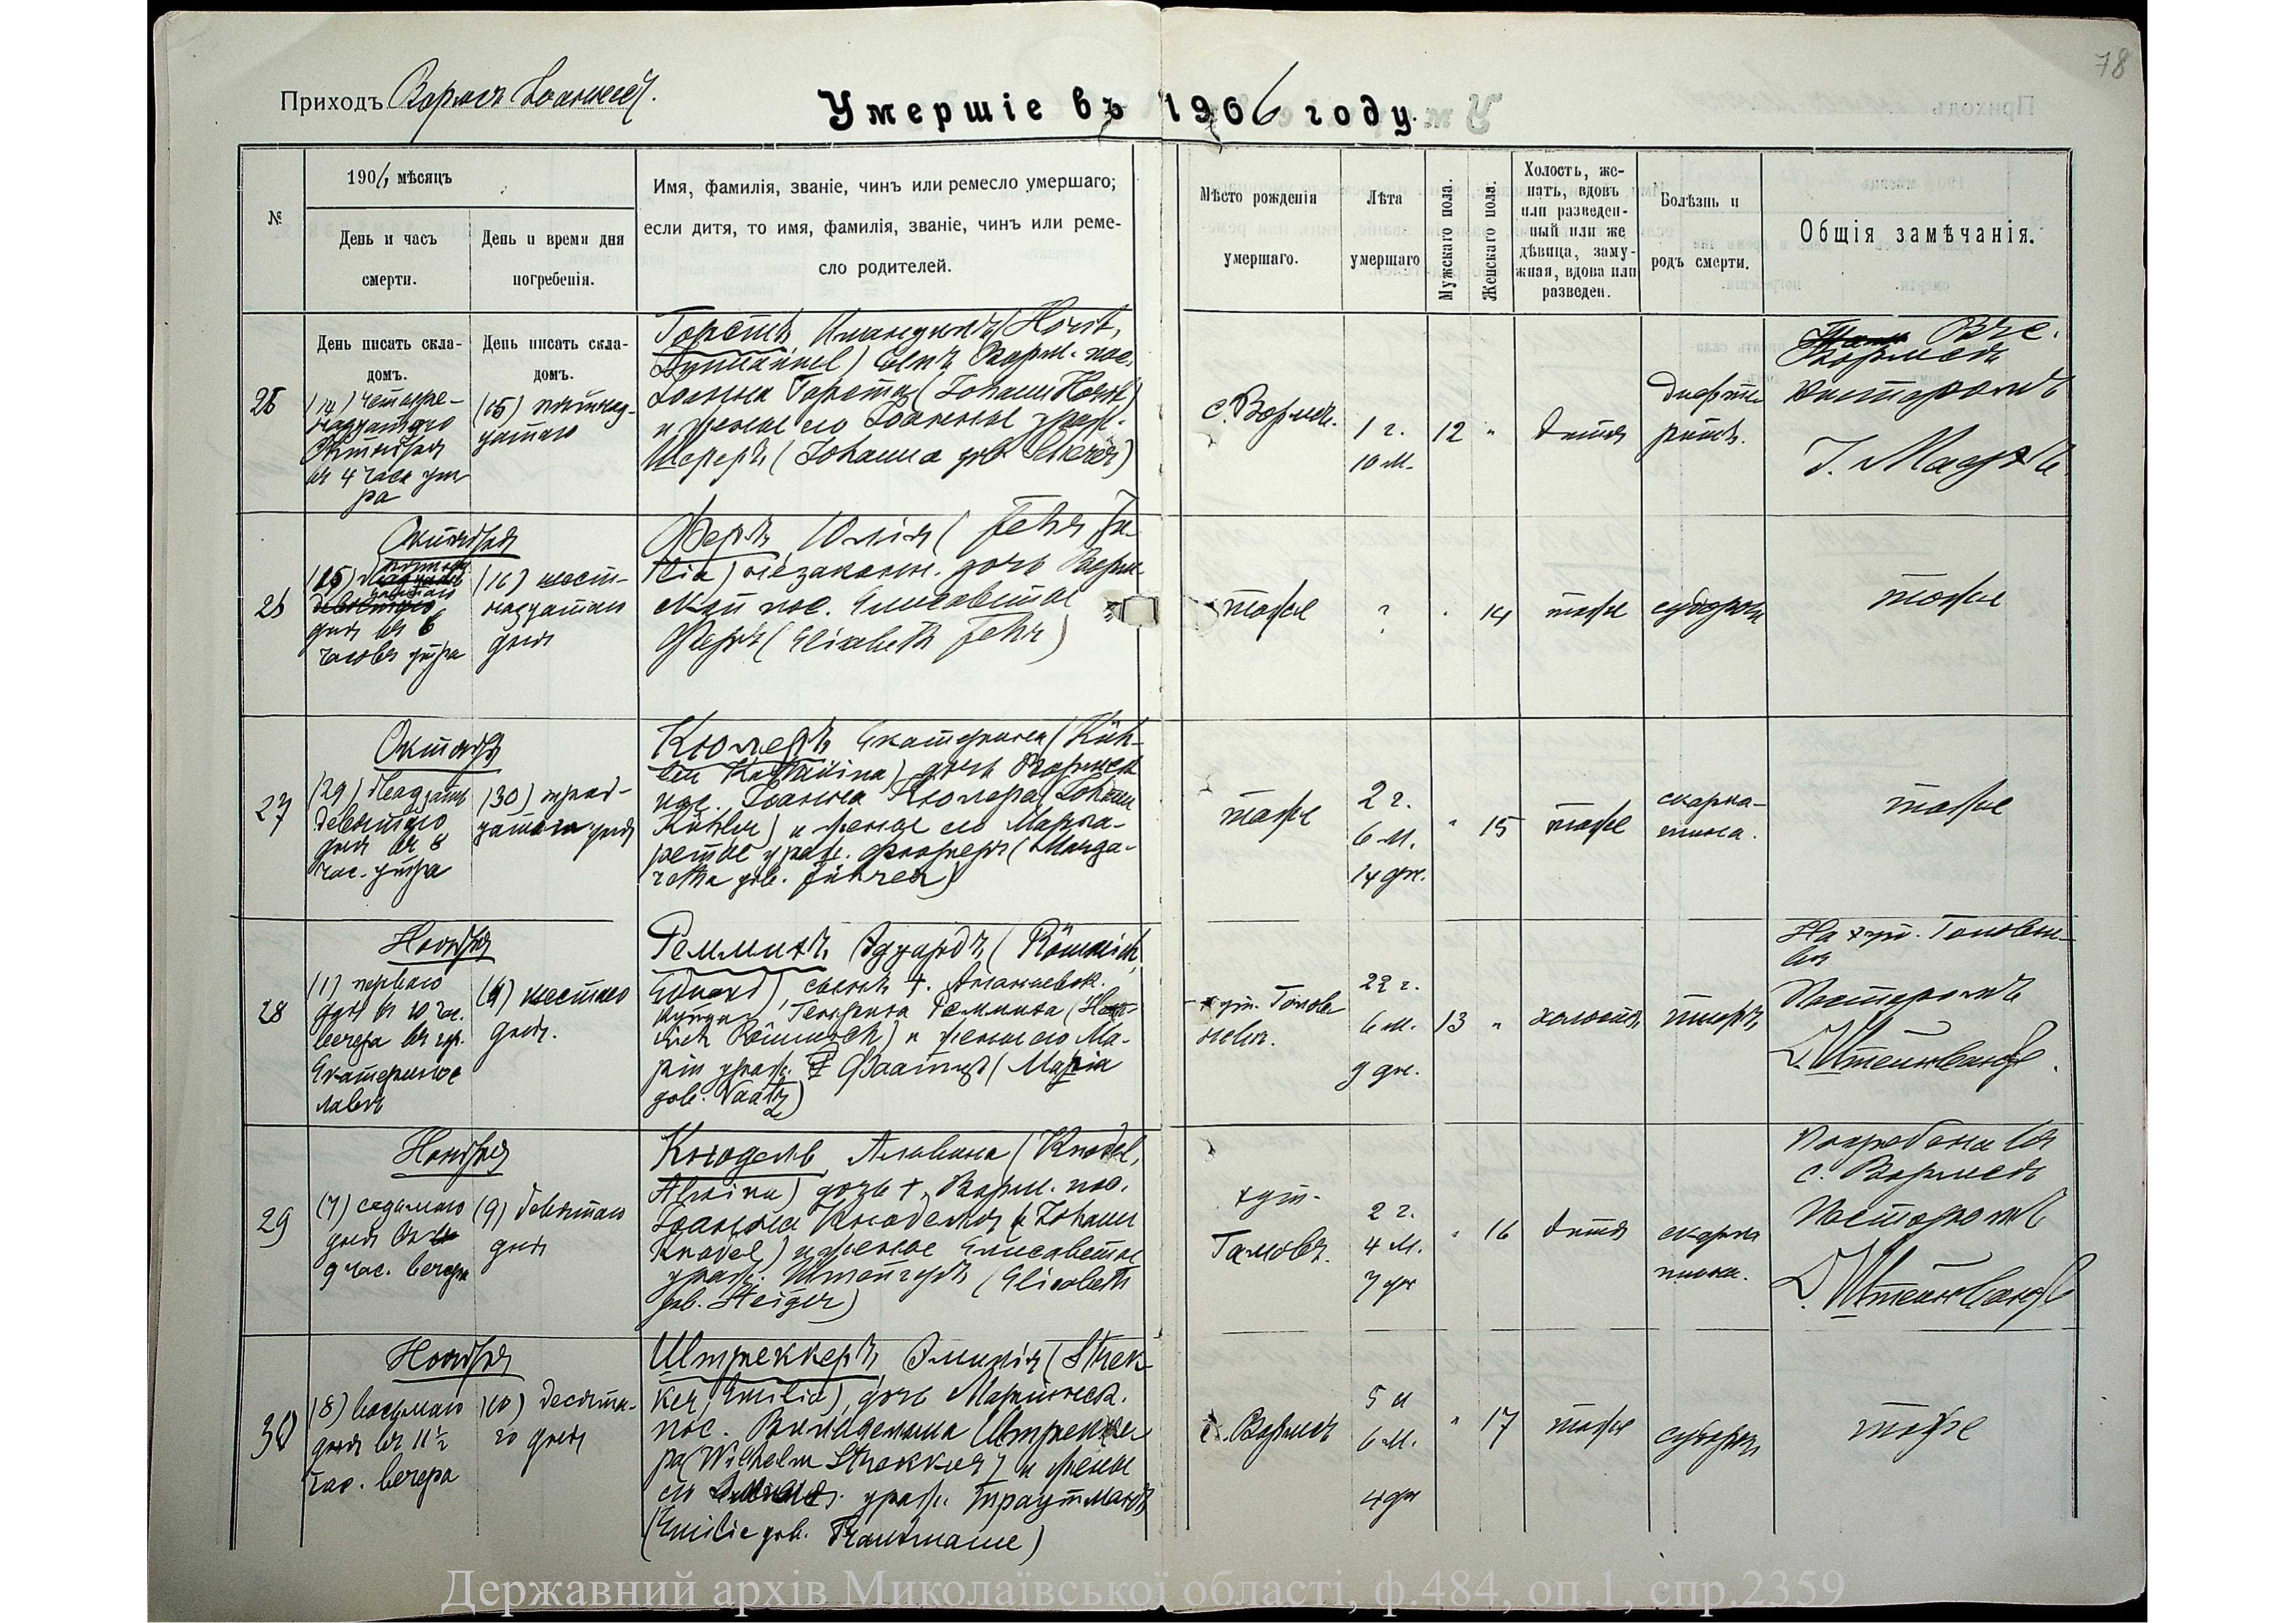 78
Приходъ Вормсъ Іоаннесф.
Умершіе въ 1906 году.
№
1906, мѣсяцъ
День и часъ
смерти.
День и время дня
погребенія.
Имя, фамилія, званіе, чинъ или ремесло умершаго;
если дитя, то имя, фамилія, званіе, чинъ или реме-
сло родителей.
Мѣсто рожденія
умершаго.
Лѣта
умершаго
Мужскаго пола.
Женскаго пола.
Холость, же-
нать, вдовъ
или разведен-
ный или же
дѣвица, заму-
жная, вдова или
разведен.
Болѣзнь и
родъ смерти.
Общія замѣчанія.
День писать скла-
домъ.
День писать скла-
домъ.
25
(14) четыре-
надцатаго
Октября
въ 4 часа ут
ра
(15) пятнад-
цатаго
Горстъ, Иммануилъ (Horst,
Immanuel) сынъ Ворм. пос.
Іоанна Горста (Johann Horst)
и жены его Іоанны урож.
Шереръ (Johanna geb. Scherer)
с. Вормсъ.
1 г.
10 м.
12
"
дитя
дифте
ритъ.
Вче.
Вормсъ
Пасторомъ
26
Октября
(15)
дня въ 6
часовъ утра
(16) шест-
надцатаго
дня
Феръ, Юлія (Fehr Ju-
lia) незаконн. дочь Ворм
ской пос. Елисаветы
Феръ (Elisabeth Fehr)
тоже
?
14
тоже
судороги
тоже
27
Октября
(29) двадцать
девятаго
дня въ 8
час. утра
(30) трид-
цатаго дня
Кюлеръ Екатерина (Küh-
ler Katharina) дочь Вормск
пос. Іоанна Кюлера (Johann
Kühler) и жены его Марга-
реты урож. Фюреръ (Marga-
retha geb. Führer)
тоже
2 г.
6 м.
14 дн.
"
15
тоже
скарла-
тина.
тоже
28
Ноября
(1) перваго
дня въ 10 час.
вечера въ гр.
Екатерино
славъ
шестаго
дня.
Реммихъ Эдуардъ, (Römmich
Eduard) сынъ †. Ананьевск.
купца Генриха Реммиха (Hein-
rich Römmich) и жены его Ма-
ріи урож. Фаатцъ (Maria
geb. Vaatz)
22 г.
6 м.
9 дн.
13
"
холостъ
тифъ
На хут.
Пасторомъ
Д. Штейнвандъ.
29
Ноября
(7) седьмаго
дня въ
9 час. вечера
(9) девятаго
дня
Кнодель Альвина (Knodel,
Alwina) дочь †, Ворм. пос.
Іоанна Кноделя (Johann
Knodel) и жены Елисаветы
урож. Штейгеръ (Elisabeth
geb. Steiger)
хут.
2 г.
4 м.
7 дн
"
16
дитя
скарла
тина.
Погребена въ
с. Вормсъ
Пасторомъ
Д. Штейнвандъ
30
Ноября
(8) восьмаго
дня въ 11½
час. вечера
(10) десята-
го дня
Штреккеръ, Эмилія (Strek-
ker, Emilie), дочь
пос. Вильгельма Штрекке
ра (Wilhelm Strekker) и жены
его урож. Траутманъ
(Emilie geb. Trautmann)
с. Вормсъ
6 м.
4 дн
"
17
тоже
судороги
тоже
Державний архів Миколаївської області, ф.484, оп.1, спр.2359